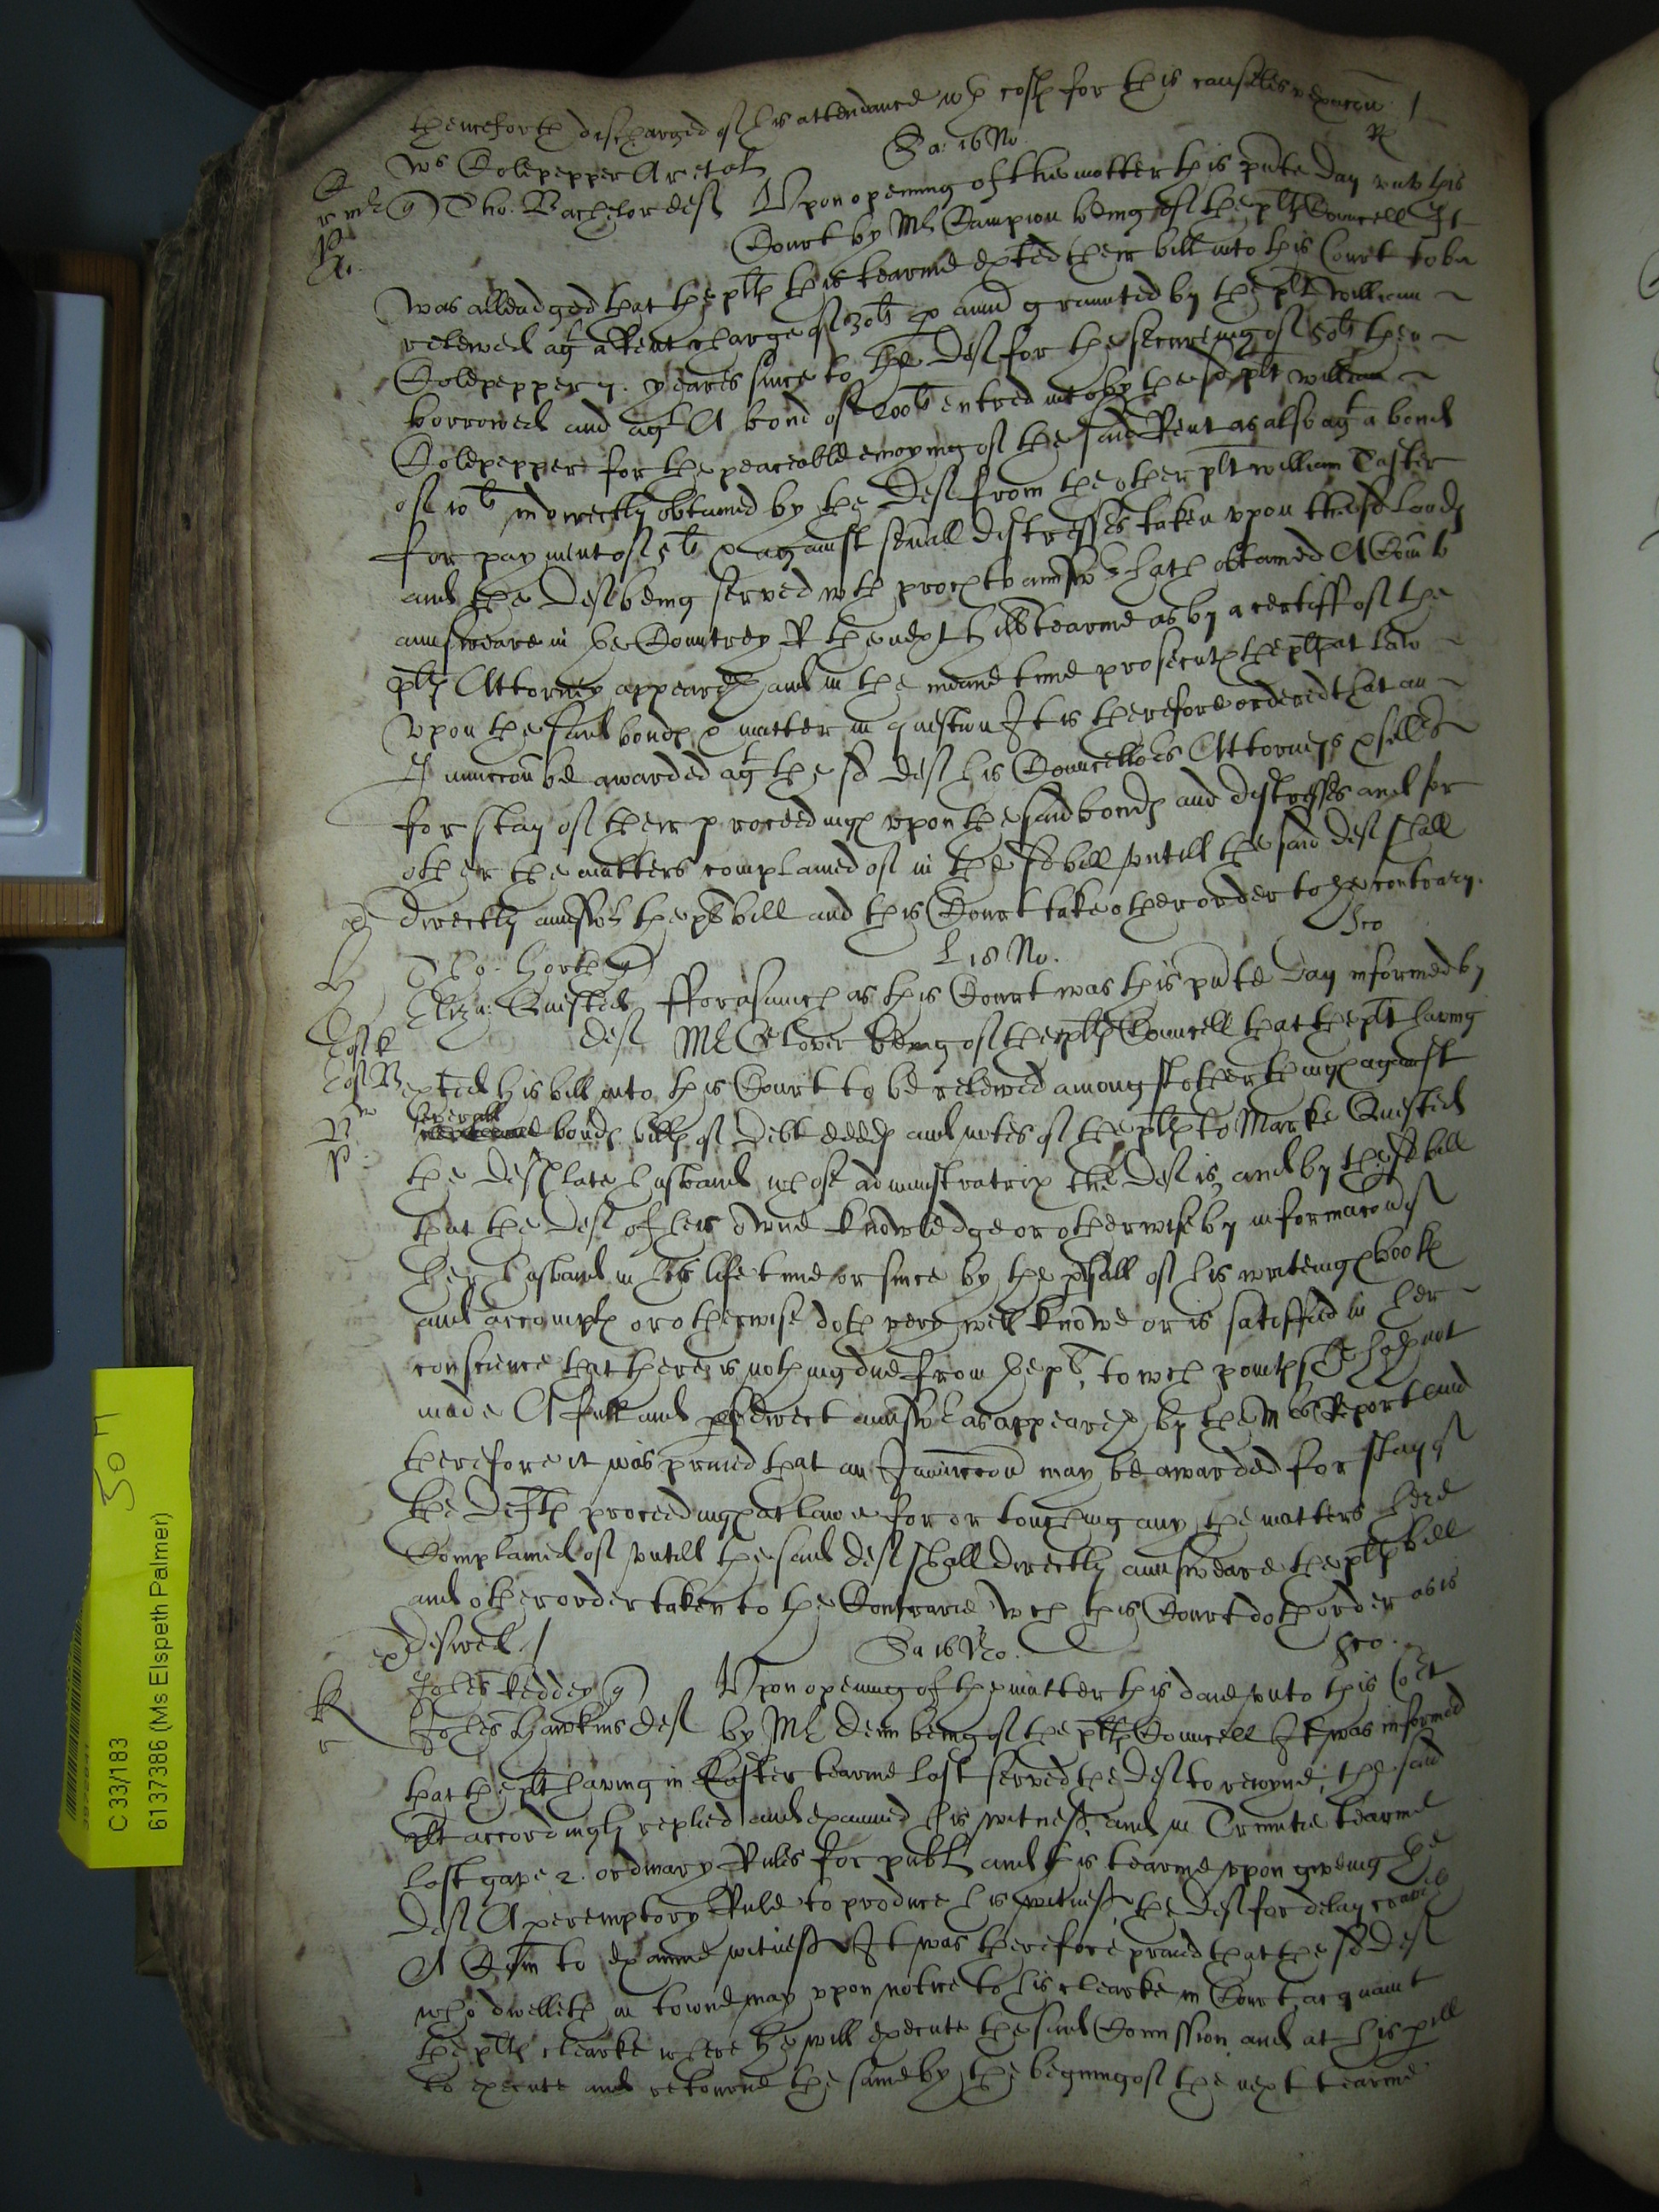 thenceforth discharged of his attendance wth costs for this causeles vexacon /
Sa: 16 No
Wm Colepepper Ar et al
Tho: Bachelor def Upon opening of the matter this pnte day unto this
Court by Mr Sampson being of the plts Councell It
was alleadged that the plts this tearme exhted their bill into this Court to be
releived agt a Rent charge of 30li p ann graunted by the plt William
Colepepper 7. yeares since to the Def for the secureing of 50li then
borrowed and agt A bond of 200li entred into by the sd plt William
Colepepper for the peaceable enioying of the said Rent as also agt a bond
of 10li indirectly obtained by the Def from the other plt William Taster
for payment of 5li & against seuall distresses taken upon the sd Lands
and the Def being served with proces to answr hath obtained A Com to
answeare in the Countrey R the next Hill tearme as by a certiff of the
plts Attorney appeareth and in the meane time prosecuts the plts at law
upon the said bonds & matter in question It is therefore ordered that an
Iniunccon be awarded agt the sd Def his Councellors Attorneys & sollrs
for stay of their proceedings upon the said bonds and distresses and for
other the matters complained of in the sd bill untill the said Def shall
directly answr the plts bill and this Court take other order to the contrary.
L 18 No.
Tho: Horth
Eliza: Quested def fforasmuch as this Court was this pnte day informed by
Mr Clover being of the plts Councell that the plt having
exhted his bill into this Court to be releived amongst other things against
severall bonds bills of debt deeds and notes of the plts to Marke Quested
the Defts late husband whose administratrix the Def is, and by the sd bill
that the Def of her owne knowledge or otherwise by informacon of
her husband in his life time or since by the pusall of his writeings books
and accompts or otherwise doth very well knowe or is satisfied in her
conscience that there is nothing due from the plt, to wch points she hath not
made A full and pfect direct answr as appeareth by the Mrs Report and
therefore it was praied that an Iniunccon may be awarded for stay of
the Defts proceedings at lawe for or touching any the matters here
Complained of untill the said def shall directly answeare the plts bill
and other order taken to the Contrarie Wch this Court doth order as is
desired /
Sa 16 No.
Johes Keddey
Johes Hawkins def Upon opening of the matter this daie unto this Cort
by Mr Denn being of the plts Councell It was informed
that the plt having in Easter tearme last served the def to reioyne, the said
plt accordingly replied and examined his witness, and in Trinitie tearme
last gave 2. ordinary Rules for publ and this tearme upon giveing the
Def A peremptory Rule to produce his witness, the def for delay craveth
A Com to examine witness It was therefore praied that the sd Def
who dwelleth in towne may upon notice to his clearke in Court acquaint
the plts clearke where he will execute the said Comission and at his pill
to execute and retourne the same by the begining of the next tearme
C 33/183
6137386 (Ms Elspeth Palmer)